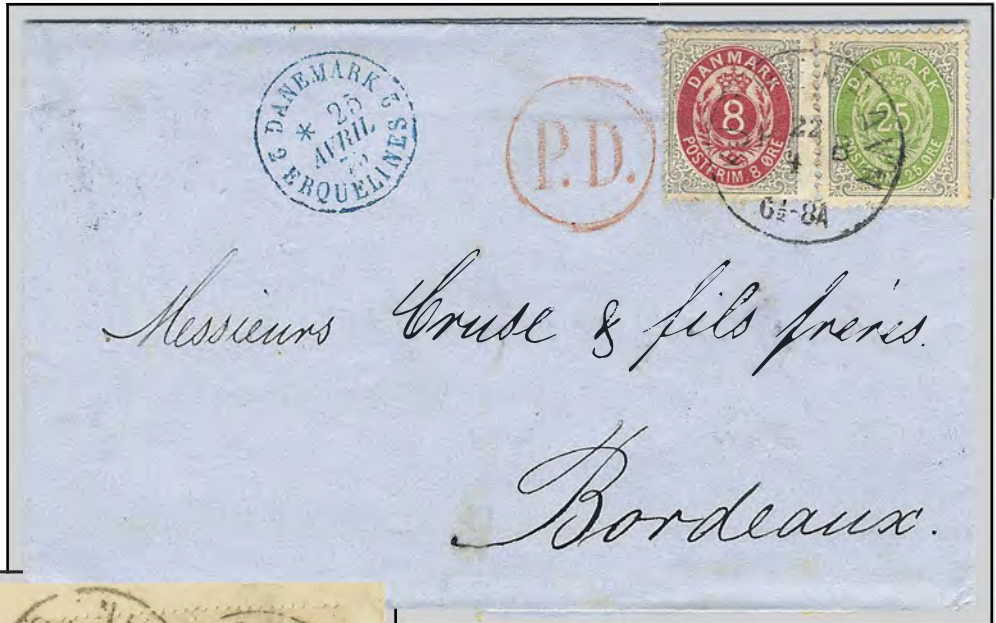 2 DANEMARK 2
* 25
AVRIL
ERQUELINES
P.D.
DANMARK
8
POSTFRIM. 8 ØRE
DANMARK
25
25 ØRE
22
4
6½-8A
Messieurs Cruse & fils frères.
Bordeaux.